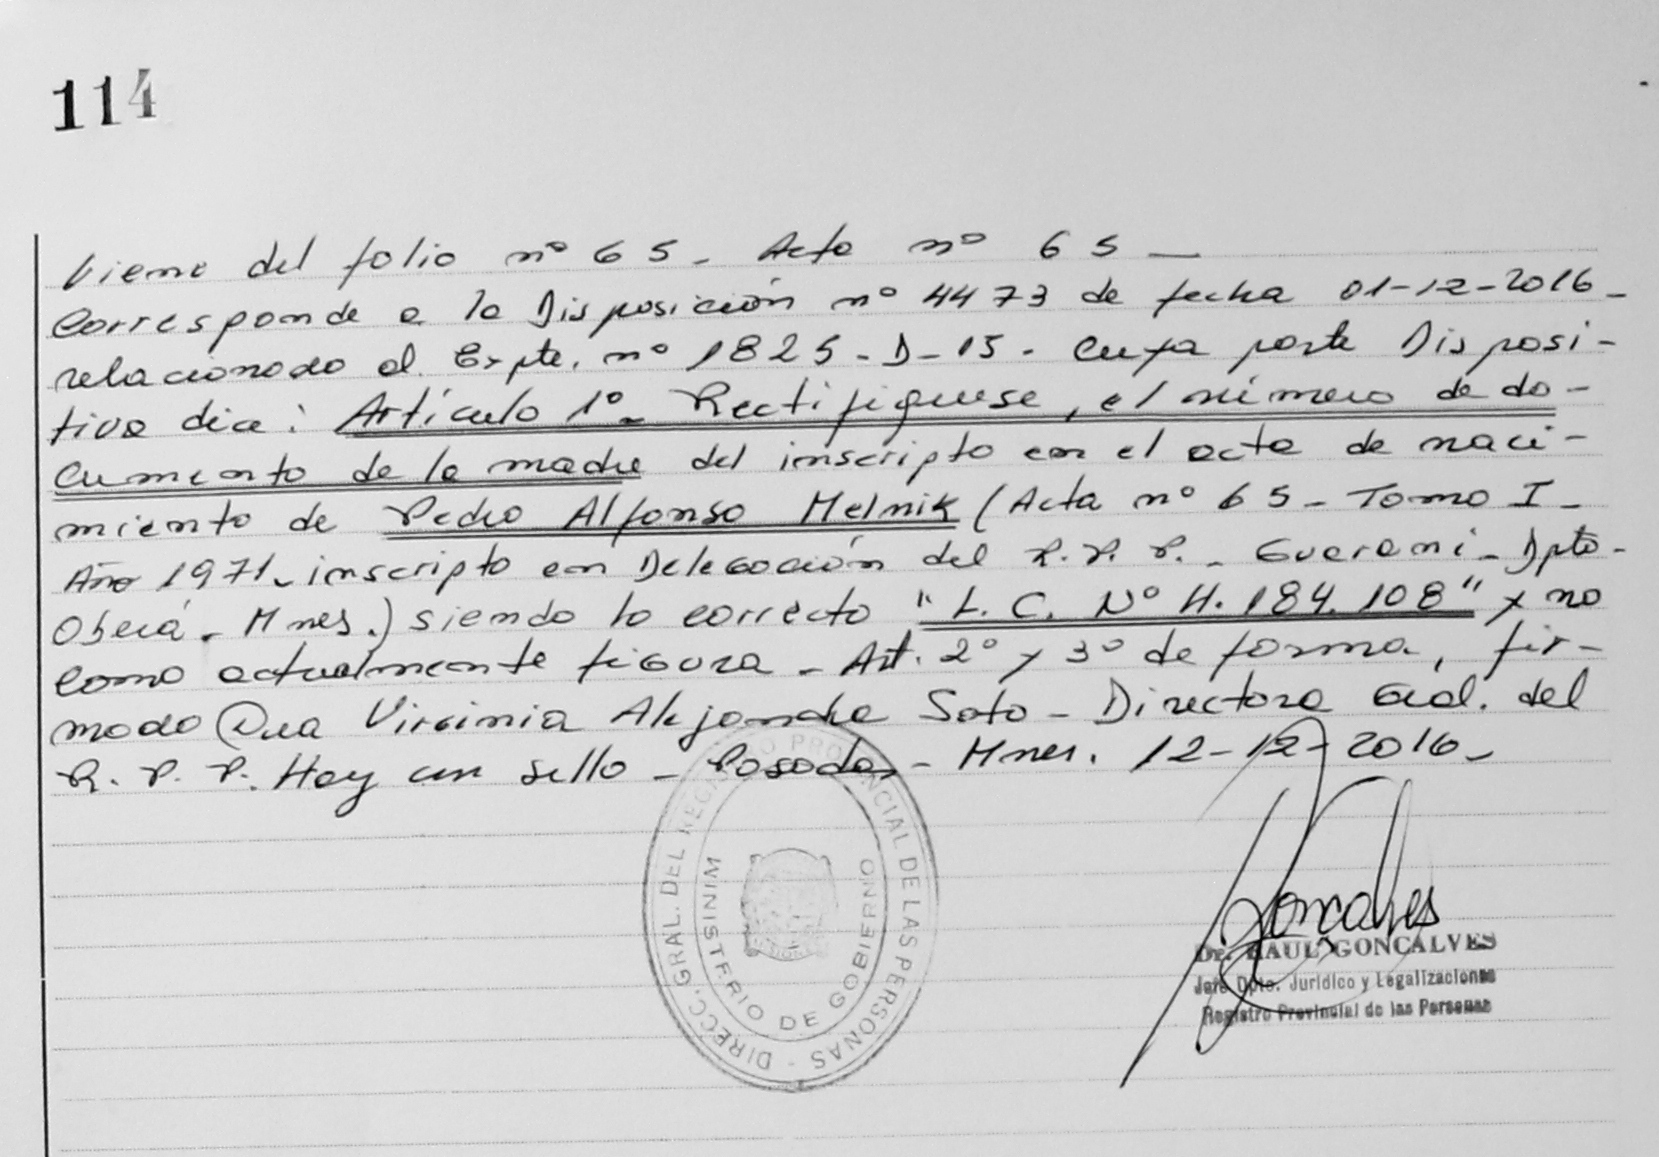 114
Viene del folio nº 65 - Acta nº 65 —
Corresponde a la Disposición nº 4473 de fecha 01-12-2016 -
relacionado al Expte. nº 1825 - D - 15 - Cuya parte Disposi-
tiva dice: Artículo 1º - Rectifíquese, el número de do-
cumento de la madre del inscripto en el acta de naci-
miento de Pedro Alfonso Melnik (Acta nº 65 - Tomo I -
Año 1971 - inscripto en Delegación del R. P. P. - Guaraní - Dpto -
Oberá - Mnes.) siendo lo correcto "L. C. Nº 4.184.108" y no
como actualmente figura - Art. 2º y 3º de forma, fir-
mado Dra Virginia Alejandra Soto - Directora Gral. del
R. P. P. Hay un sello - Posadas - Mnes. 12-12-2016 -
DIRECC. GRAL. DEL REGISTRO PROVINCIAL DE LAS PERSONAS -
MINISTERIO DE GOBIERNO
Goncalves
Dr. RAUL GONCALVES
Jefe Dpto. Jurídico y Legalizaciones
Registro Provincial de las Personas